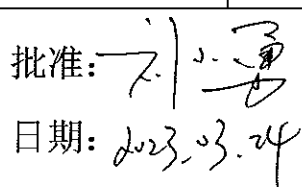 批准：刘小勇
日期：2023.03.24